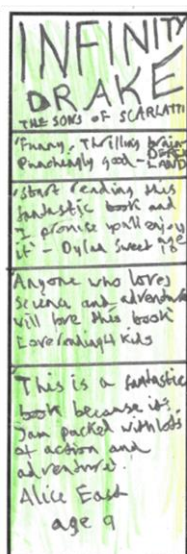 INFINITY
DRAKE
THE SONS OF SCARLATTI
"Funny, Thrilling
Punchingly good -
"Start reading this
fantastic book and
I promise you'll enjoy
it" - Dylan Sweet age 10
Anyone who loves
science and adventure
will love this book
Lovereading4kids
"This is a fantastic
book because it's
Jam packed with lots
of action and
adventure.'
Alice East
age 9